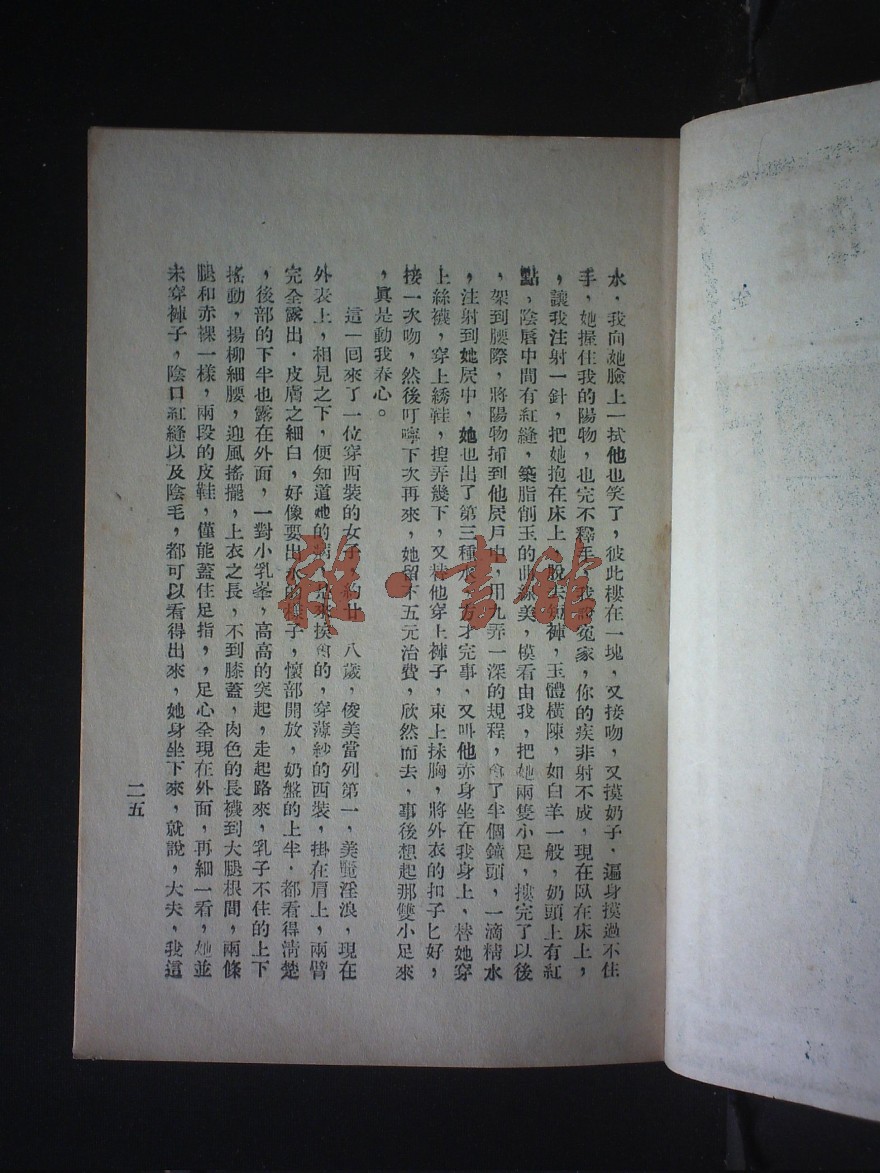 水，我向她臉上一拭他也笑了，彼此樓在一塊，又接吻，又摸奶子，遍身摸過不住
手，她握住我的陽物，也完不釋手，我說冤家，你的疾非射不成，現在臥在床上，
，讓我注射一針，把她抱在床上，脫去短褲，玉體橫陳，如白羊一般，奶頭上有紅
點，陰唇中間有紅縫，築脂削玉的曲線美，模看由我，把她兩隻小足，摟完了以後
，架到腰際，將陽物插到他屄戶中，用九弄一深的規程，了半個鐘頭，一滴精水
，注射到她屄中，她也出了第三種水，方才完事，又叫他赤身坐在我身上，替她穿
上絲襪，穿上綉鞋，揑弄幾下，又替他穿上褲子，束上抹胸，將外衣的扣子匕好，
接一次吻，然後叮嚀下次再來，她留下五元治費，欣然而去，事後想起那雙小足來
，眞是動我春心。
這一回來了一位穿西裝的女子，約廿八歲，俊美當列第一，美豔淫浪，現在
外表上，相見之下，便知道她的病是來挨的，穿薄紗的西裝，掛在肩上，兩臂
完全露出．皮膚之細白，好像要出水的樣子，懷部開放，奶盤的上半．都看得淸楚
，後部的下半也露在外面，一對小乳峯，高高的突起，走起路來，乳子不住的上下
搖動，揚柳細腰，迎風搖擺，上衣之長，不到膝蓋，肉色的長襪到大腿根間，兩條
腿和赤裸一樣，兩段的皮鞋，僅能蓋住足指，，足心全現在外面，再細一看，她並
未穿褲子，陰口紅縫以及陰毛，都可以看得出來，她身坐下來，就說，大夫，我這
二五
雜·書館